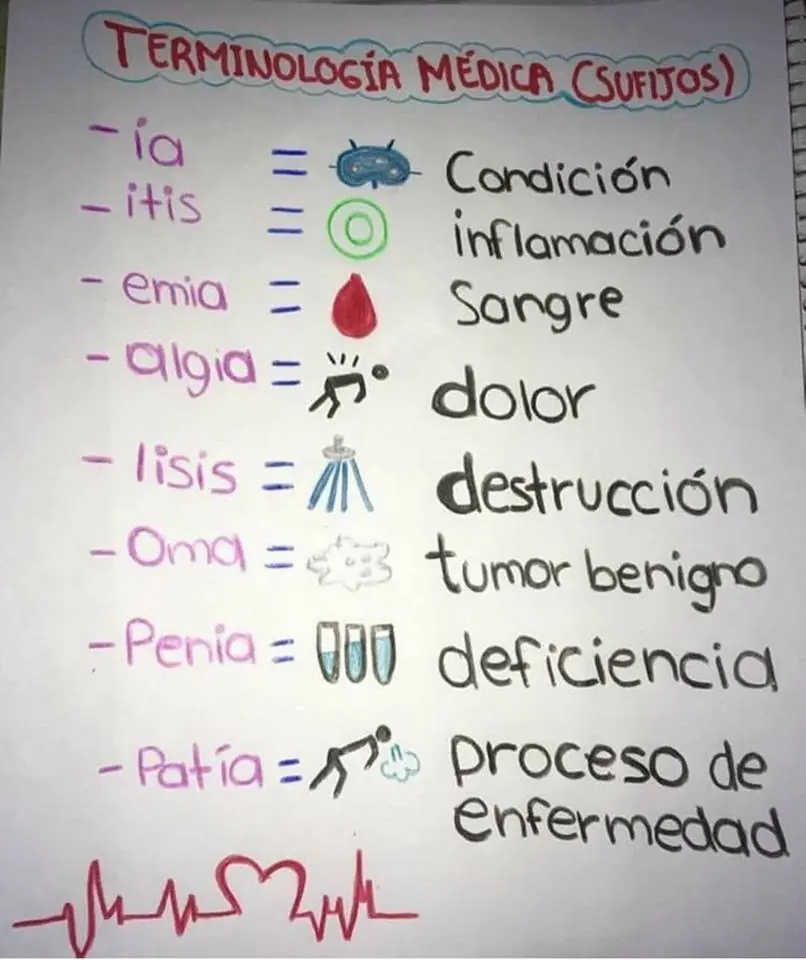 TERMINOLOGÍA MÉDICA (SUFIJOS)
-ía = Condición
-itis = inflamación
-emia = Sangre
-algia = dolor
-lisis = destrucción
-Oma = tumor benigno
-Penia = deficiencia
-Patía = proceso de
enfermedad